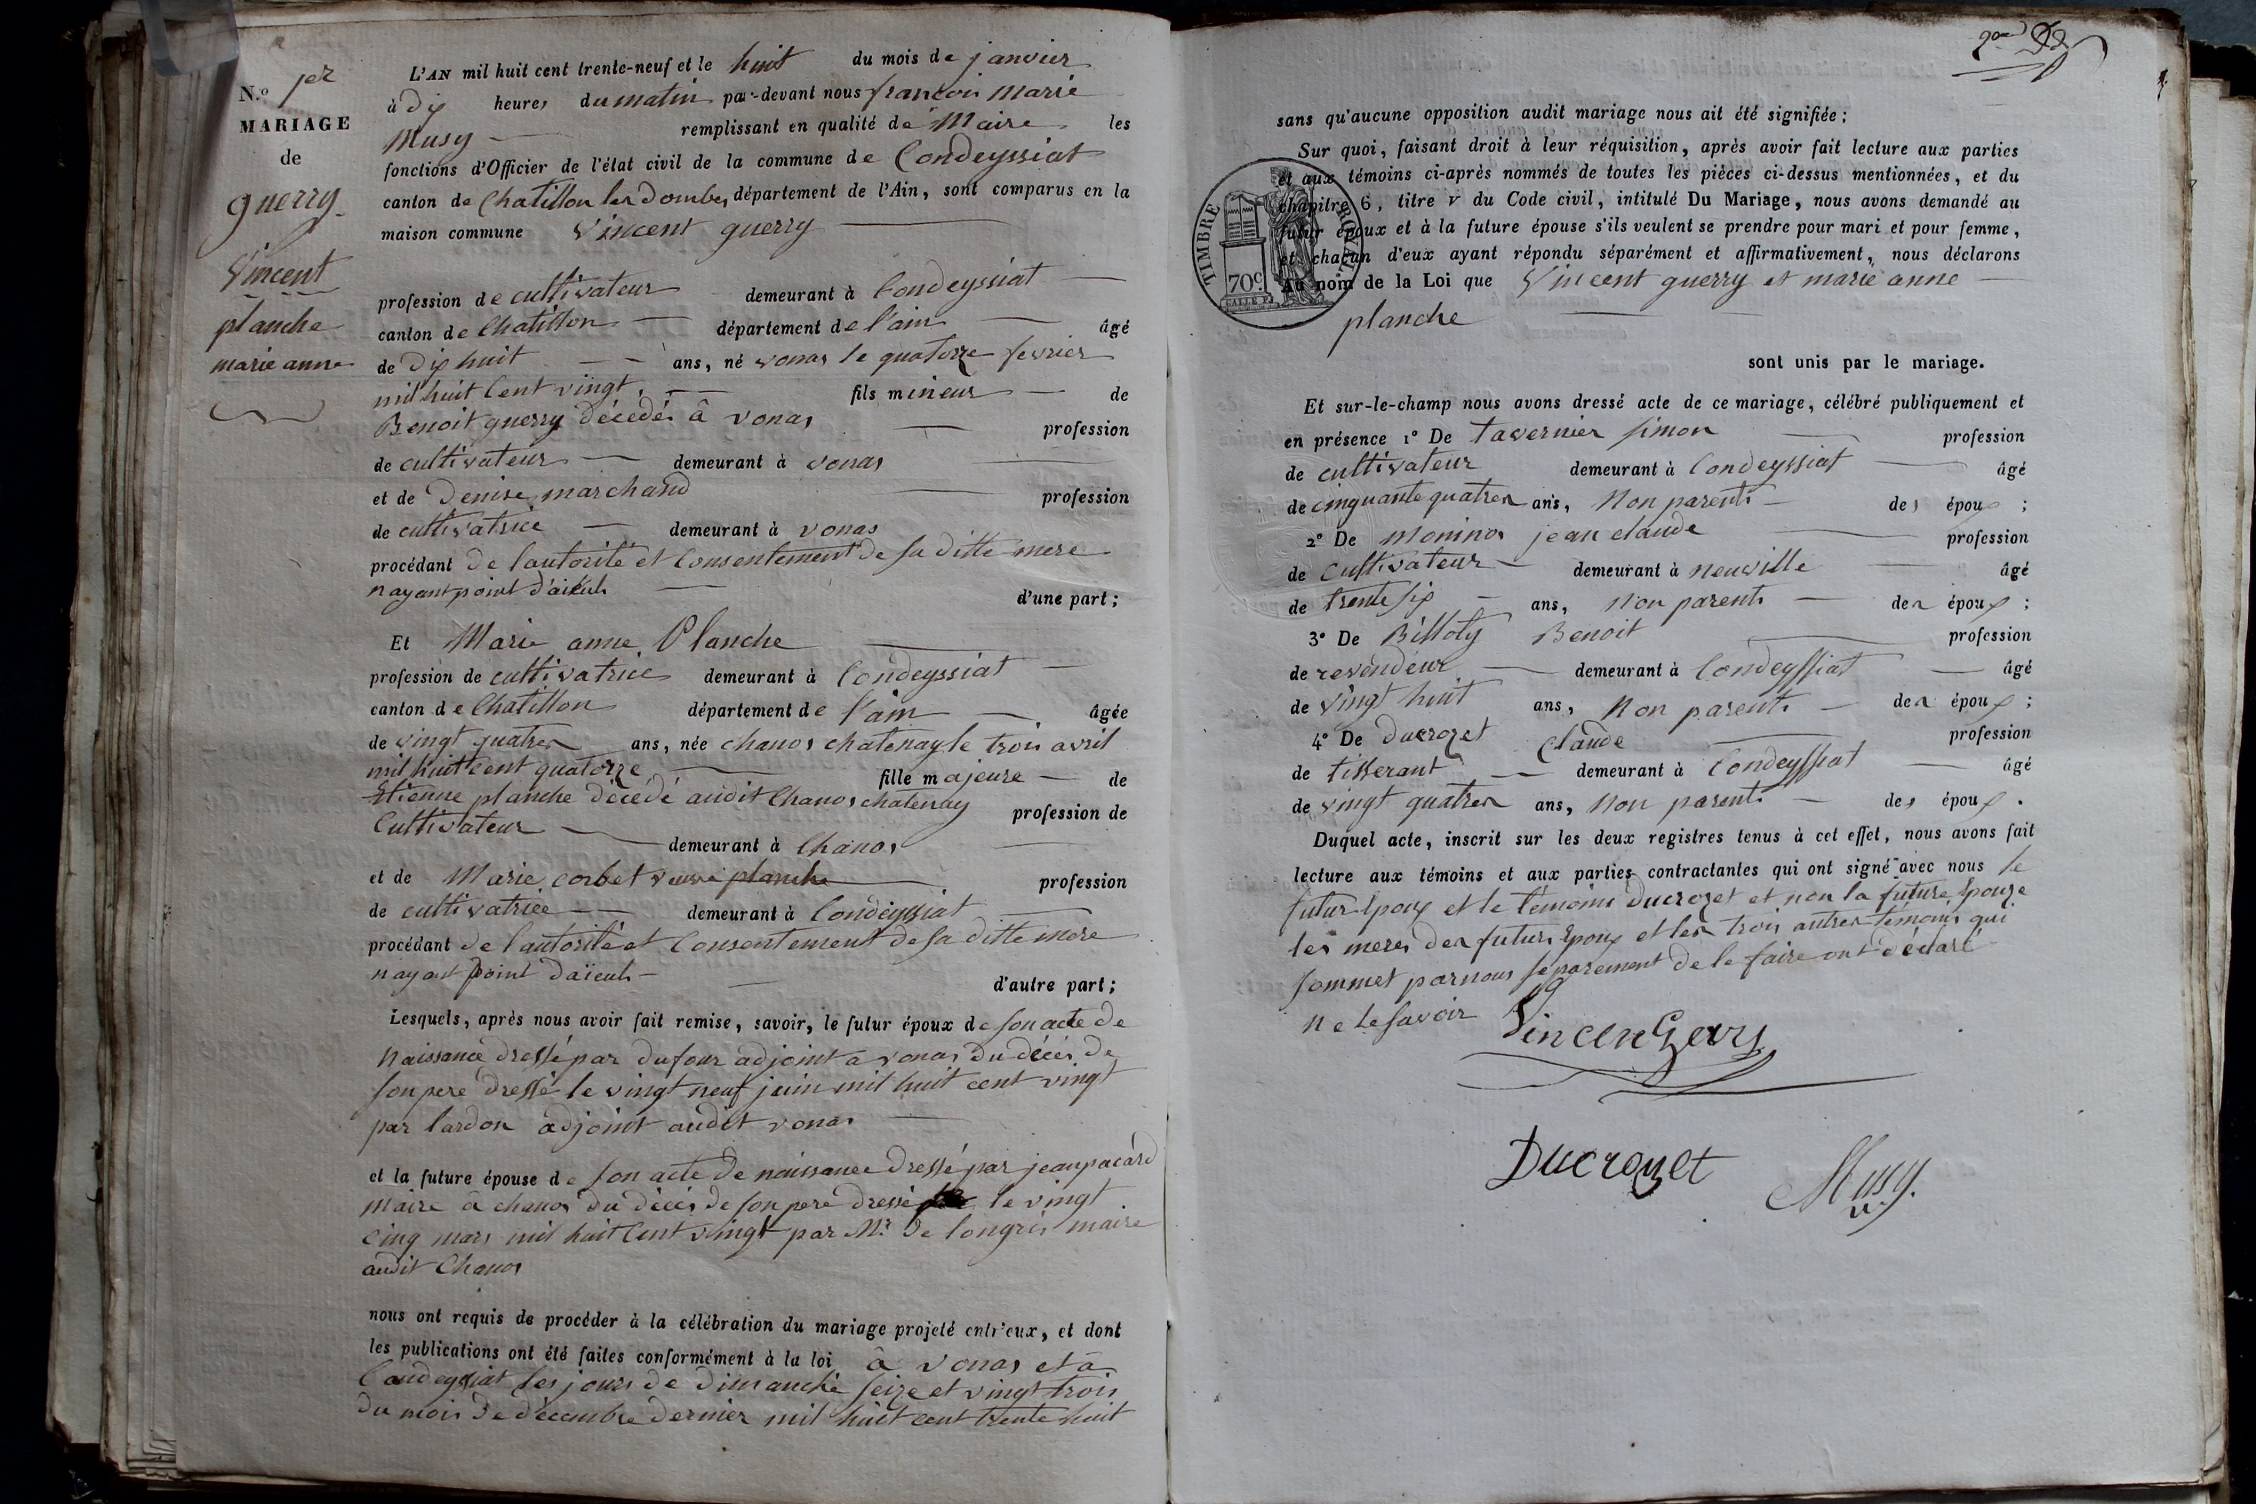 N.º 1er
MARIAGE
de
guerry
Vincent
planche
marie anne
L'AN mil huit cent trente-neuf et le huit du mois de janvier
à dix heures du matin par-devant nous francois marie
Musy remplissant en qualité de Maire les
fonctions d'Officier de l'état civil de la commune de Condeyssiat
canton de Chatillon les dombes, département de l'Ain, sont comparus en la
maison commune Vincent guerry
profession de cultivateur demeurant à Condeyssiat
canton de Chatillon département de l'ain âgé
de dix huit ans, né vonas le quatorze fevrier
mil huit Cent vingt, fils mineur de
Benoit guerry décédés à vonas profession
de cultivateur demeurant à vonas
et de Denise marchand profession
de cultivatrice demeurant à vonas
procédant de l'autorité et Consentement de sa ditte mere
nayant point d'aieuls d'une part;
Et Marie anne Planche
profession de cultivatrice demeurant à Condeyssiat
canton de Chatillon département de l'ain âgée
de vingt quatres ans, née chanos chatenay le trois avril
mil huit cent quatorze fille majeure de
Etienne planche décédé audit Chanos chatenay profession de
Cultivateur demeurant à Chanos
et de Marie corbet veuve planche profession
de cultivatrice demeurant à Condeyssiat
procédant de l'autorité et Consentement de sa ditte mere
nayant point daïeuls d'autre part;
Lesquels, après nous avoir fait remise, savoir, le futur époux de son acte de
Naissance dressé par dufour adjoint à vonas du décés de
son pere dressé le vingt neuf juin mil huit cent vingt
par lardon adjoint audit vonas
et la future épouse de son acte de naissance dressé par jean pacard
maire à chanos du décés de son pere dressé le vingt
cinq mars mil huit Cent vingt par Mr. de longris maire
audit Chanos
nous ont requis de procéder à la célébration du mariage projeté entr'eux, et dont
les publications ont été faites conformément à la loi à vonas et à
Condeyssiat les jours de dimanche seize et vingt trois
du mois de décembre dernier mil huit cent trente huit
sans qu'aucune opposition audit mariage nous ait été signifiée;
Sur quoi, faisant droit à leur réquisition, après avoir fait lecture aux parties
et aux témoins ci-après nommés de toutes les pièces ci-dessus mentionnées, et du
chapitre 6, titre v du Code civil, intitulé Du Mariage, nous avons demandé au
futur époux et à la future épouse s'ils veulent se prendre pour mari et pour femme,
et chacun d'eux ayant répondu séparément et affirmativement, nous déclarons
Au nom de la Loi que Vincent guerry et marie anne
planche
TIMBRE ROYAL
70c
sont unis par le mariage.
Et sur-le-champ nous avons dressé acte de ce mariage, célébré publiquement et
en présence 1º De tavernier simon profession
de cultivateur demeurant à Condeyssiat âgé
de cinquante quatres ans, Non parents des époux ;
2º De moninos jean claude profession
de Cultivateur demeurant à neuville âgé
de trente six ans, Non parents des époux ;
3º De Billoty Benoit profession
de revendeur demeurant à Condeyssiat âgé
de vingt huit ans, Non parents des époux ;
4º De ducrozet Claude profession
de tisserant demeurant à Condeyssiat âgé
de vingt quatres ans, Non parents des époux .
Duquel acte, inscrit sur les deux registres tenus à cet effet, nous avons fait
lecture aux témoins et aux parties contractantes qui ont signé avec nous le
futur Epoux et le témoins Ducrozet et non la future Epouze
les meres des futurs Epoux et les trois autres témoins qui
sommet par nous séparement de le faire ont déclaré
ne le savoir
Vincen Gerry
Ducrozet
Musy.